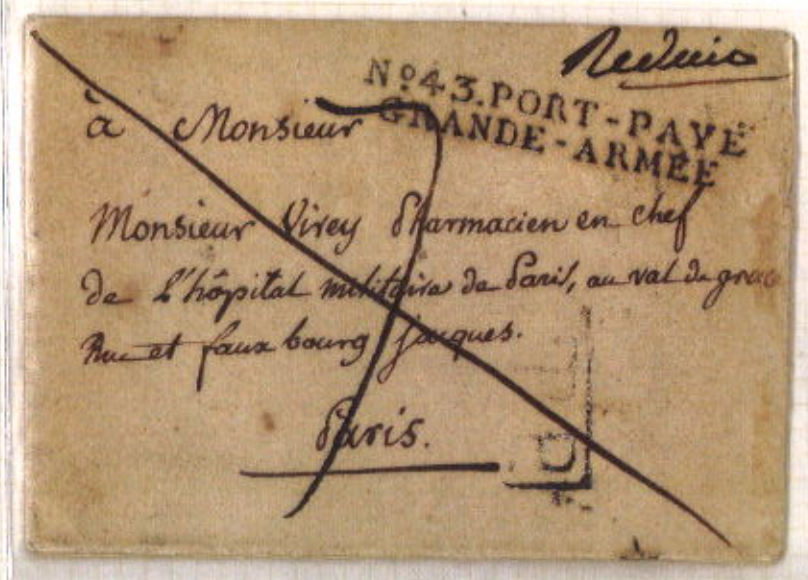 Nº43.PORT-PAYÉ
GRANDE-ARMÉE
à Monsieur
Monsieur Virey Pharmacien en chef
de l'hôpital militaire de Paris, au val de grace
Rue et faux bourg Jacques.
Paris.